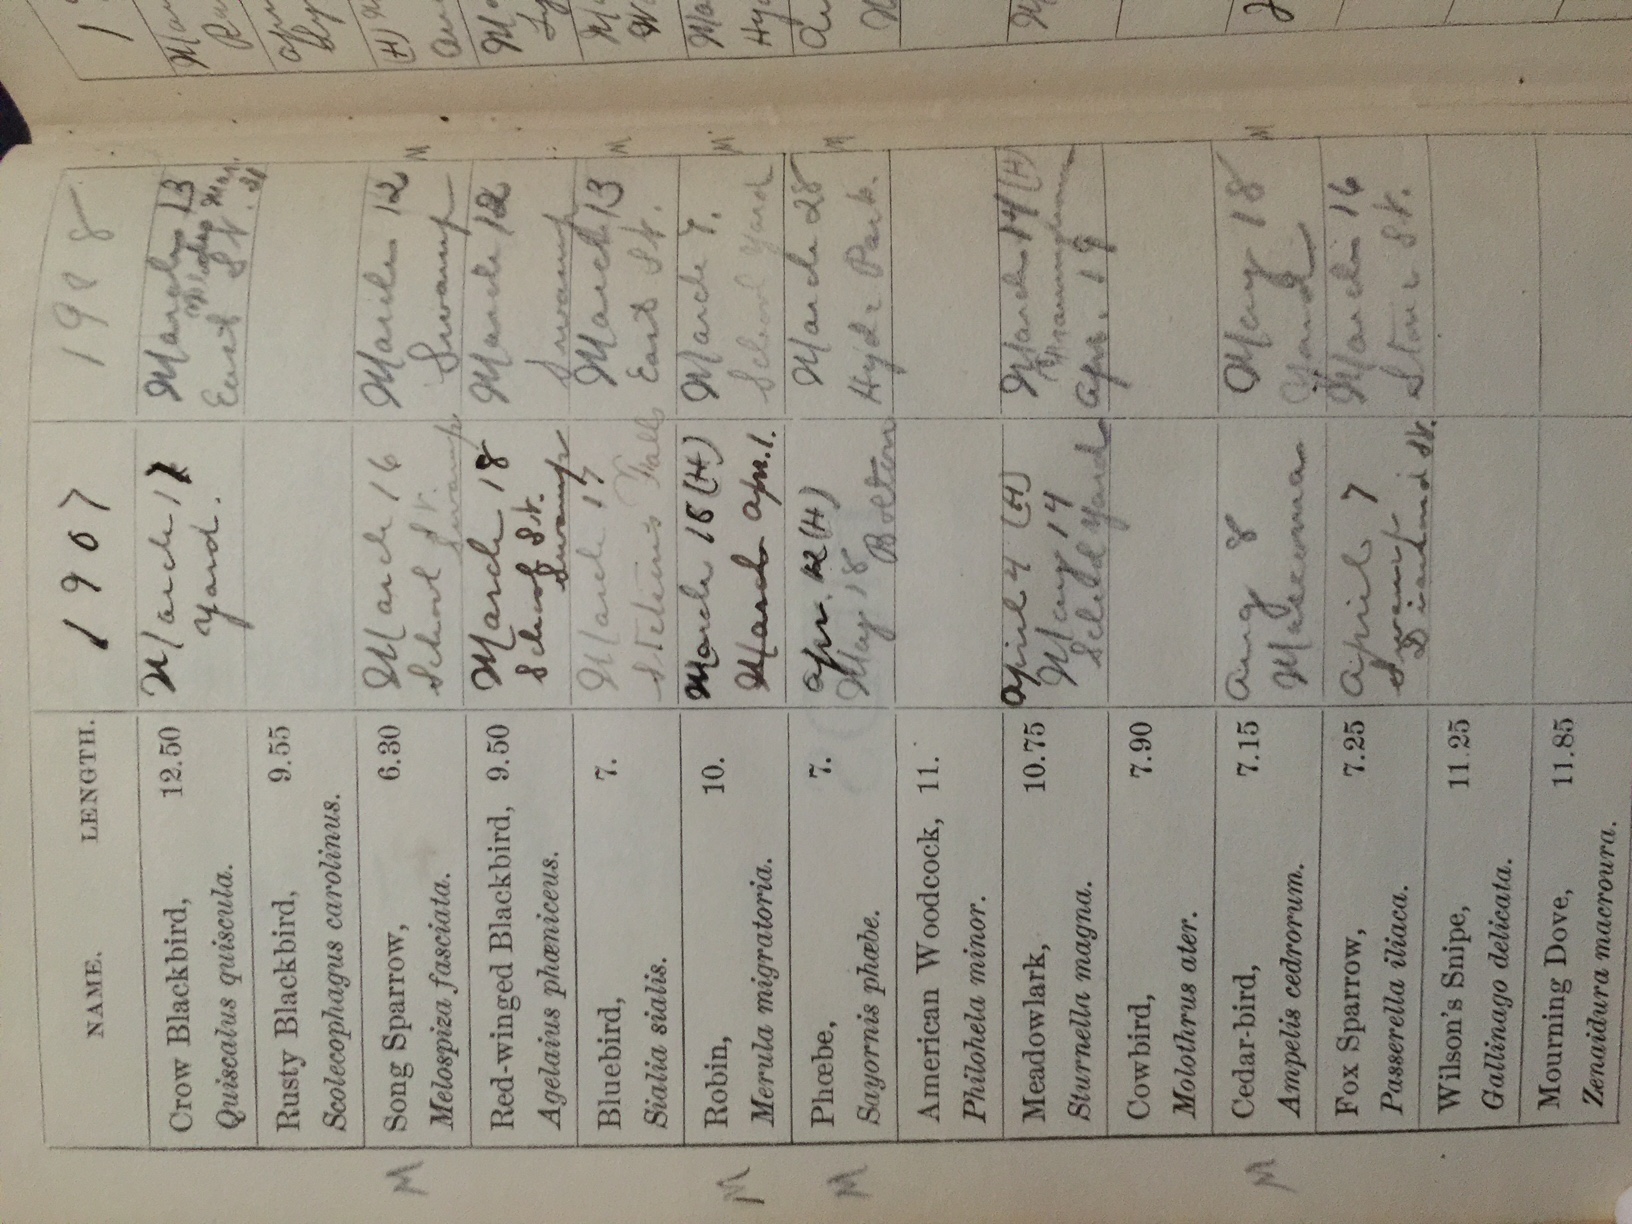 NAME. LENGTH. 1907 1908
Crow Blackbird, 12.50 March 17 March 13
Quiscalus quiscula. Yard. East St.
Rusty Blackbird, 9.55
Scolecophagus carolinus.
M Song Sparrow, 6.30 March 16 March 12 M
Melospiza fasciata. School St. Swamp Swamp
Red-winged Blackbird, 9.50 March 18 March 12
Agelaius phœniceus. School St. Swamp Swamp
Bluebird, 7. March 17 March 13 M
Sialia sialis. Stetins Falls East St.
M Robin, 10. March 18 (H) March 7. M
Merula migratoria. March Apr. 1. School Yard
M Phœbe, 7. Apr. (H) March 28 M
Sayornis phœbe. May 18 Bolton Hyde Park.
American Woodcock, 11.
Philohela minor.
Meadowlark, 10.75 April 4 (H) March 14 (H)
Sturnella magna. May 14 School Yard Apr. 19
Cowbird, 7.90
Molothrus ater.
M Cedar-bird, 7.15 Aug 8 May 18 M
Ampelis cedrorum. Yard
Fox Sparrow, 7.25 April 7 March 16
Passerella iliaca. Swamp Stone St.
Wilson's Snipe, 11.25
Gallinago delicata.
Mourning Dove, 11.85
Zenaidura macroura.